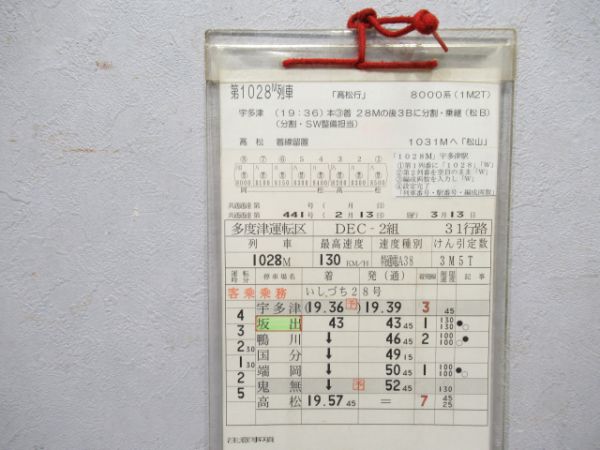 第1028M列車 「高松行」 8000系(1M2T)
宇多津 (19:36)本③着 28Mの後3Bに分割・乗継(松B)
(分割・SW整備担当)
高松 着線留置 1031Mへ「松山」
「1028M」宇多津駅
①第1列番に「1028」「W」
②第2列番を空白のまま「W」
③編成両数を入力し「W」
④設定完了
「列車番号・駅番号・編成両数」
⑧ ⑦ ⑥ ⑤ ④ ③ ② ①
岡 高 松
441号 (2月13日) 3月13日
多度津運転区 DEC-2組 31行路
列車 最高速度 速度種別 けん引定数
1028M 130KM/H A38 3M5T
運転時分 停車場名 着 発(通) 着発線 制限速度 記事
客乗乗務 いしづち28号
宇多津 (19.36 予) 19.39 3 45
4
坂出 43 43 45 1 130 130
3
鴨川 ↓ 46 45 2 100 100
2 30
国分 ↓ 49 15
1 30
端岡 ↓ 50 45 1 100 100
2
鬼無 ↓ 予 52 45 130
5
高松 19.57 45 = 7 45 25
注意事項